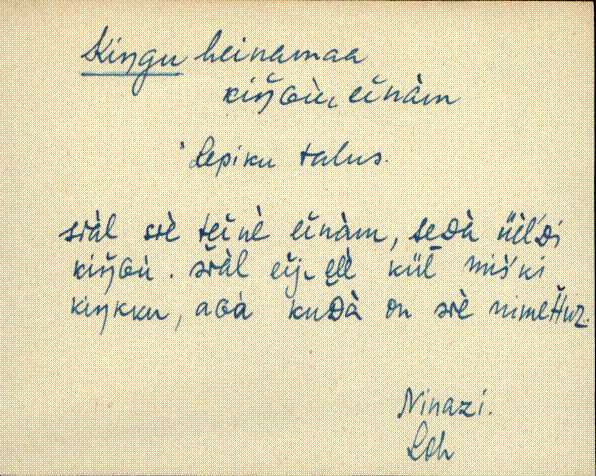 Kiŋgu heinamaa
kiŋ̆Gù, eĭnàm
Lepiku talus.
siàl siè teĭnè eĭnàm, seDà üèl'Di
kiŋ̆Gù. siàl eĭj- èlè kül miski
kiŋkku, aGà kuDà on siè nimettuz.
Ninazi.
Loh